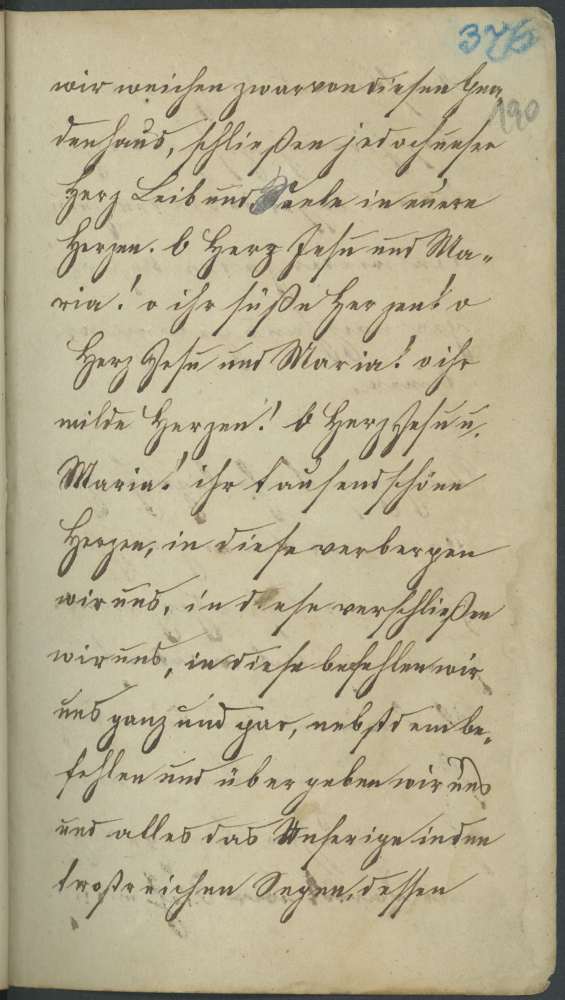 376
190
wir weichen zwar von diesen Gna
denhaus, schließen jedoch unser
Herz Leib und Seele in euere
Herzen. O Herz Jesu und Ma-
ria! o ihr süße Herzen! o
Herz Jesu und Maria! o ihr
milde Herzen! O Herz Jesu u.
Maria! ihr tausendschöne
Herzen, in diese verbergen
wir uns, in diese verschließen
wir uns, in diese befehlen wir
uns ganz und gar, nebstdem be-
fehlen und übergeben wir uns
und alles das Unserige in den
trostreichen Segen, dessen